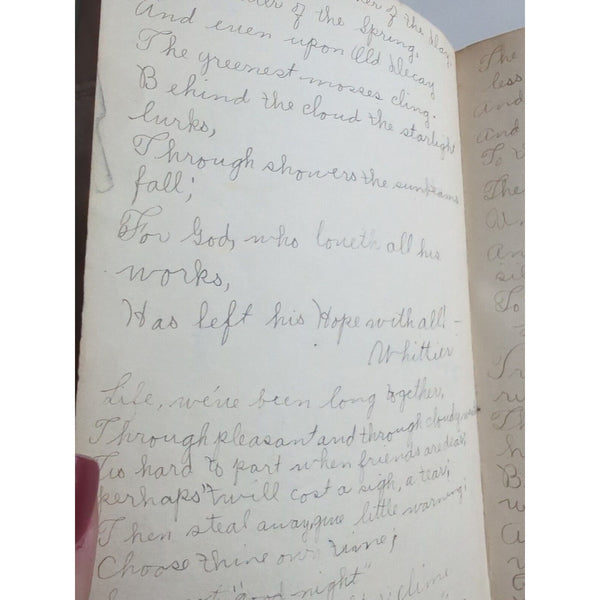 of the Day,
of the Spring.
And even upon Old Decay
The greenest mosses cling.
Behind the cloud the starlight
lurks,
Through showers the sunbeams
fall;
For God, who loveth all his
works,
Has left his Hope with all! -
Whittier
Life, we've been long together,
Through pleasant and through cloudy
Tis hard to part when friends are dear;
perhaps 'twill cost a sigh, a tear;
Then steal away, give little warning;
Choose thine own time;
"Good-night"
clime
The
less
And
And
To
The
An
sil
To
Th
B